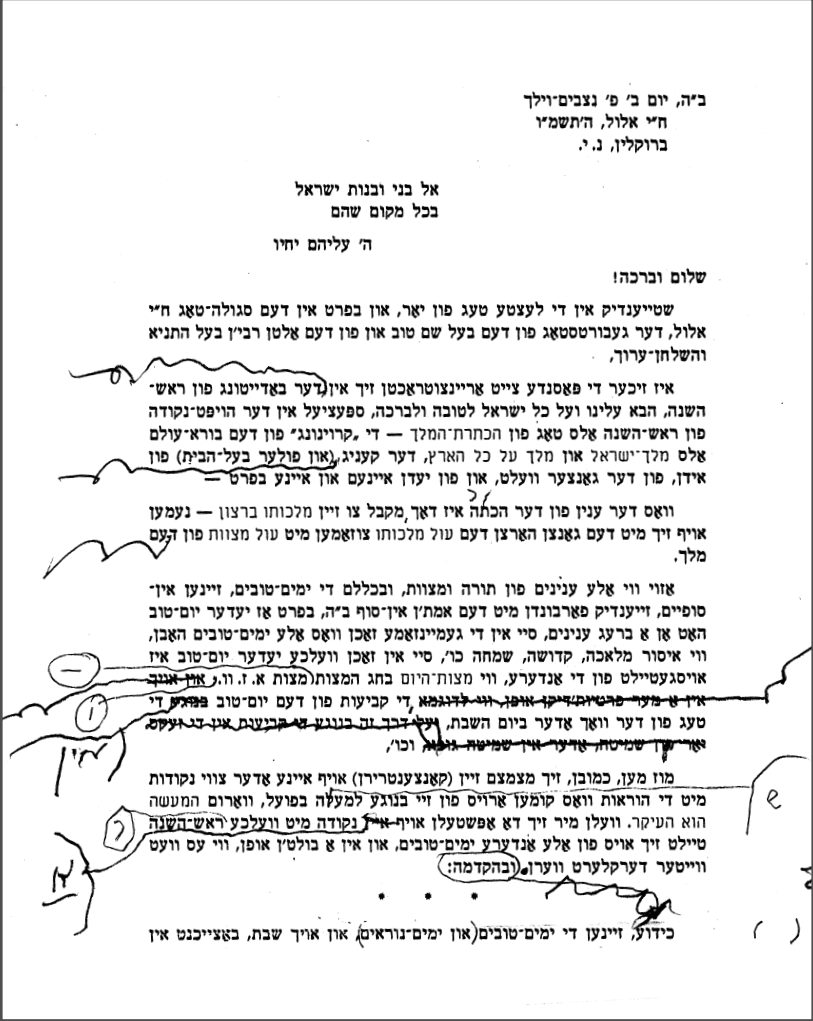 ב״ה, יום ב׳ פ׳ נצבים־וילך
ח״י אלול, ה׳תשמ״ו
ברוקלין, נ. י.
אל בני ובנות ישראל
בכל מקום שהם
ה׳ עליהם יחיו
שלום וברכה!
שטייענדיק אין די לעצטע טעג פון יאָר, און בפרט אין דעם סגולה־טאָג ח״י
אלול, דער געבורטסטאָג פון דעם בעל שם טוב און פון דעם אַלטן רבי׳ן בעל התניא
והשלחן־ערוך,
איז זיכער די פּאַסנדע צייט אַריינצוטראַכטן זיך אין דער באַדייטונג פון ראש־
השנה, הבא עלינו ועל כל ישראל לטובה ולברכה, ספּעציעל אין דער הויפּט־נקודה
פון ראש־השנה אַלס טאָג פון הכתרת־המלך — די „קרוינונג״ פון דעם בורא־עולם
אַלס מלך־ישראל און מלך על כל הארץ, דער קעניג, (און פולער בעל־הבית) פון
אידן, פון דער גאַנצער וועלט, און פון יעדן איינעם און איינע בפרט —
וואָס דער ענין פון דער הכתה איז דאָך, מקבל צו זיין מלכותו ברצון — נעמען
אויף זיך מיט דעם גאַנצן האַרצן דעם עול מלכותו צוזאַמען מיט עול מצוות פון דעם
מלך.
אַזוי ווי אַלע ענינים פון תורה ומצוות, ובכללם די ימים־טובים, זיינען אין־
סופיים, זייענדיק פאַרבונדן מיט דעם אמת׳ן אין־סוף ב״ה, בפרט אַז יעדער יום־טוב
האָט אָן אַ ברעג ענינים, סיי אין די געמיינזאַמע זאַכן וואָס אַלע ימים־טובים האָבן,
ווי איסור מלאכה, קדושה, שמחה כו׳, סיי אין זאַכן וועלכע יעדער יום־טוב איז
אויסגעטיילט פון די אַנדערע, ווי מצות־היום בחג המצות (מצות א. ז. וו., און אויך
אין אַ מער פרטיות׳דיקן אופן, ווי לדוגמא, די קביעות פון דעם יום־טוב בנוגע די
טעג פון דער וואָך אָדער ביום השבת, ועל דרך זה בנוגע די קביעות אין די זעקס
שמיטה, אָדער אין שמיטה גופא, וכו׳,
מוז מען, כמובן, זיך מצמצם זיין (קאָנצענטרירן) אויף איינע אָדער צוויי נקודות
מיט די הוראות וואָס קומען אַרויס פון זיי בנוגע למעלה בפועל, וואָרום המעשה
הוא העיקר. וועלן מיר זיך דאָ אָפּשטעלן אויף איין נקודה מיט וועלכע ראש־השנה
טיילט זיך אויס פון אַלע אַנדערע ימים־טובים, און אין אַ בולט׳ן אופן, ווי עס וועט
ווייטער דערקלערט ווערן. ובהקדמה:
* * *
כידוע, זיינען די ימים־טובים (און ימים־נוראים), און אויך שבת, באַצייכנט אין